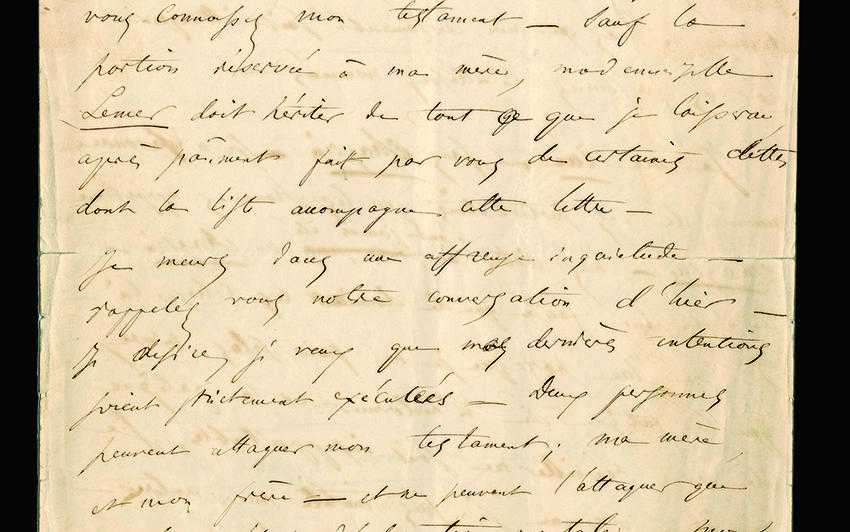 vous connaissez mon testament — Sauf la
portion réservée à ma mère, mademoiselle
Lemer doit hériter de tout ce que je laisserai
après paiement fait par vous de certaines dettes
dont la liste accompagne cette lettre —
Je meurs dans une affreuse inquiétude —
rappelez vous notre conversation d'hier —
Je désire, je veux que mes dernières intentions
soient strictement exécutées — Deux personnes
peuvent attaquer mon testament ; ma mère
et mon frère — et ne peuvent l'attaquer que
mon